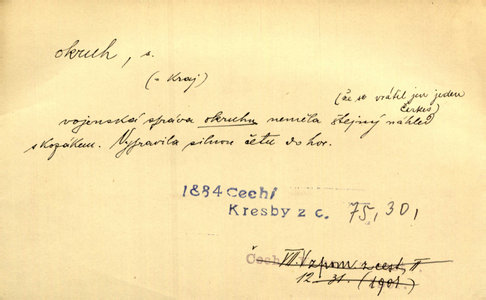 okruh, s.
(= Kraj)
(že se vrátil jen jeden
Čerkes)
vojenská správa okruhu neměla stejný náhled
s kozákem. Vypravila silnou četu do hor.
1884 Čech S.
Kresby z c. 75, 30,
Čech
VII. Vzpom. z cest II
12 31. (1901.